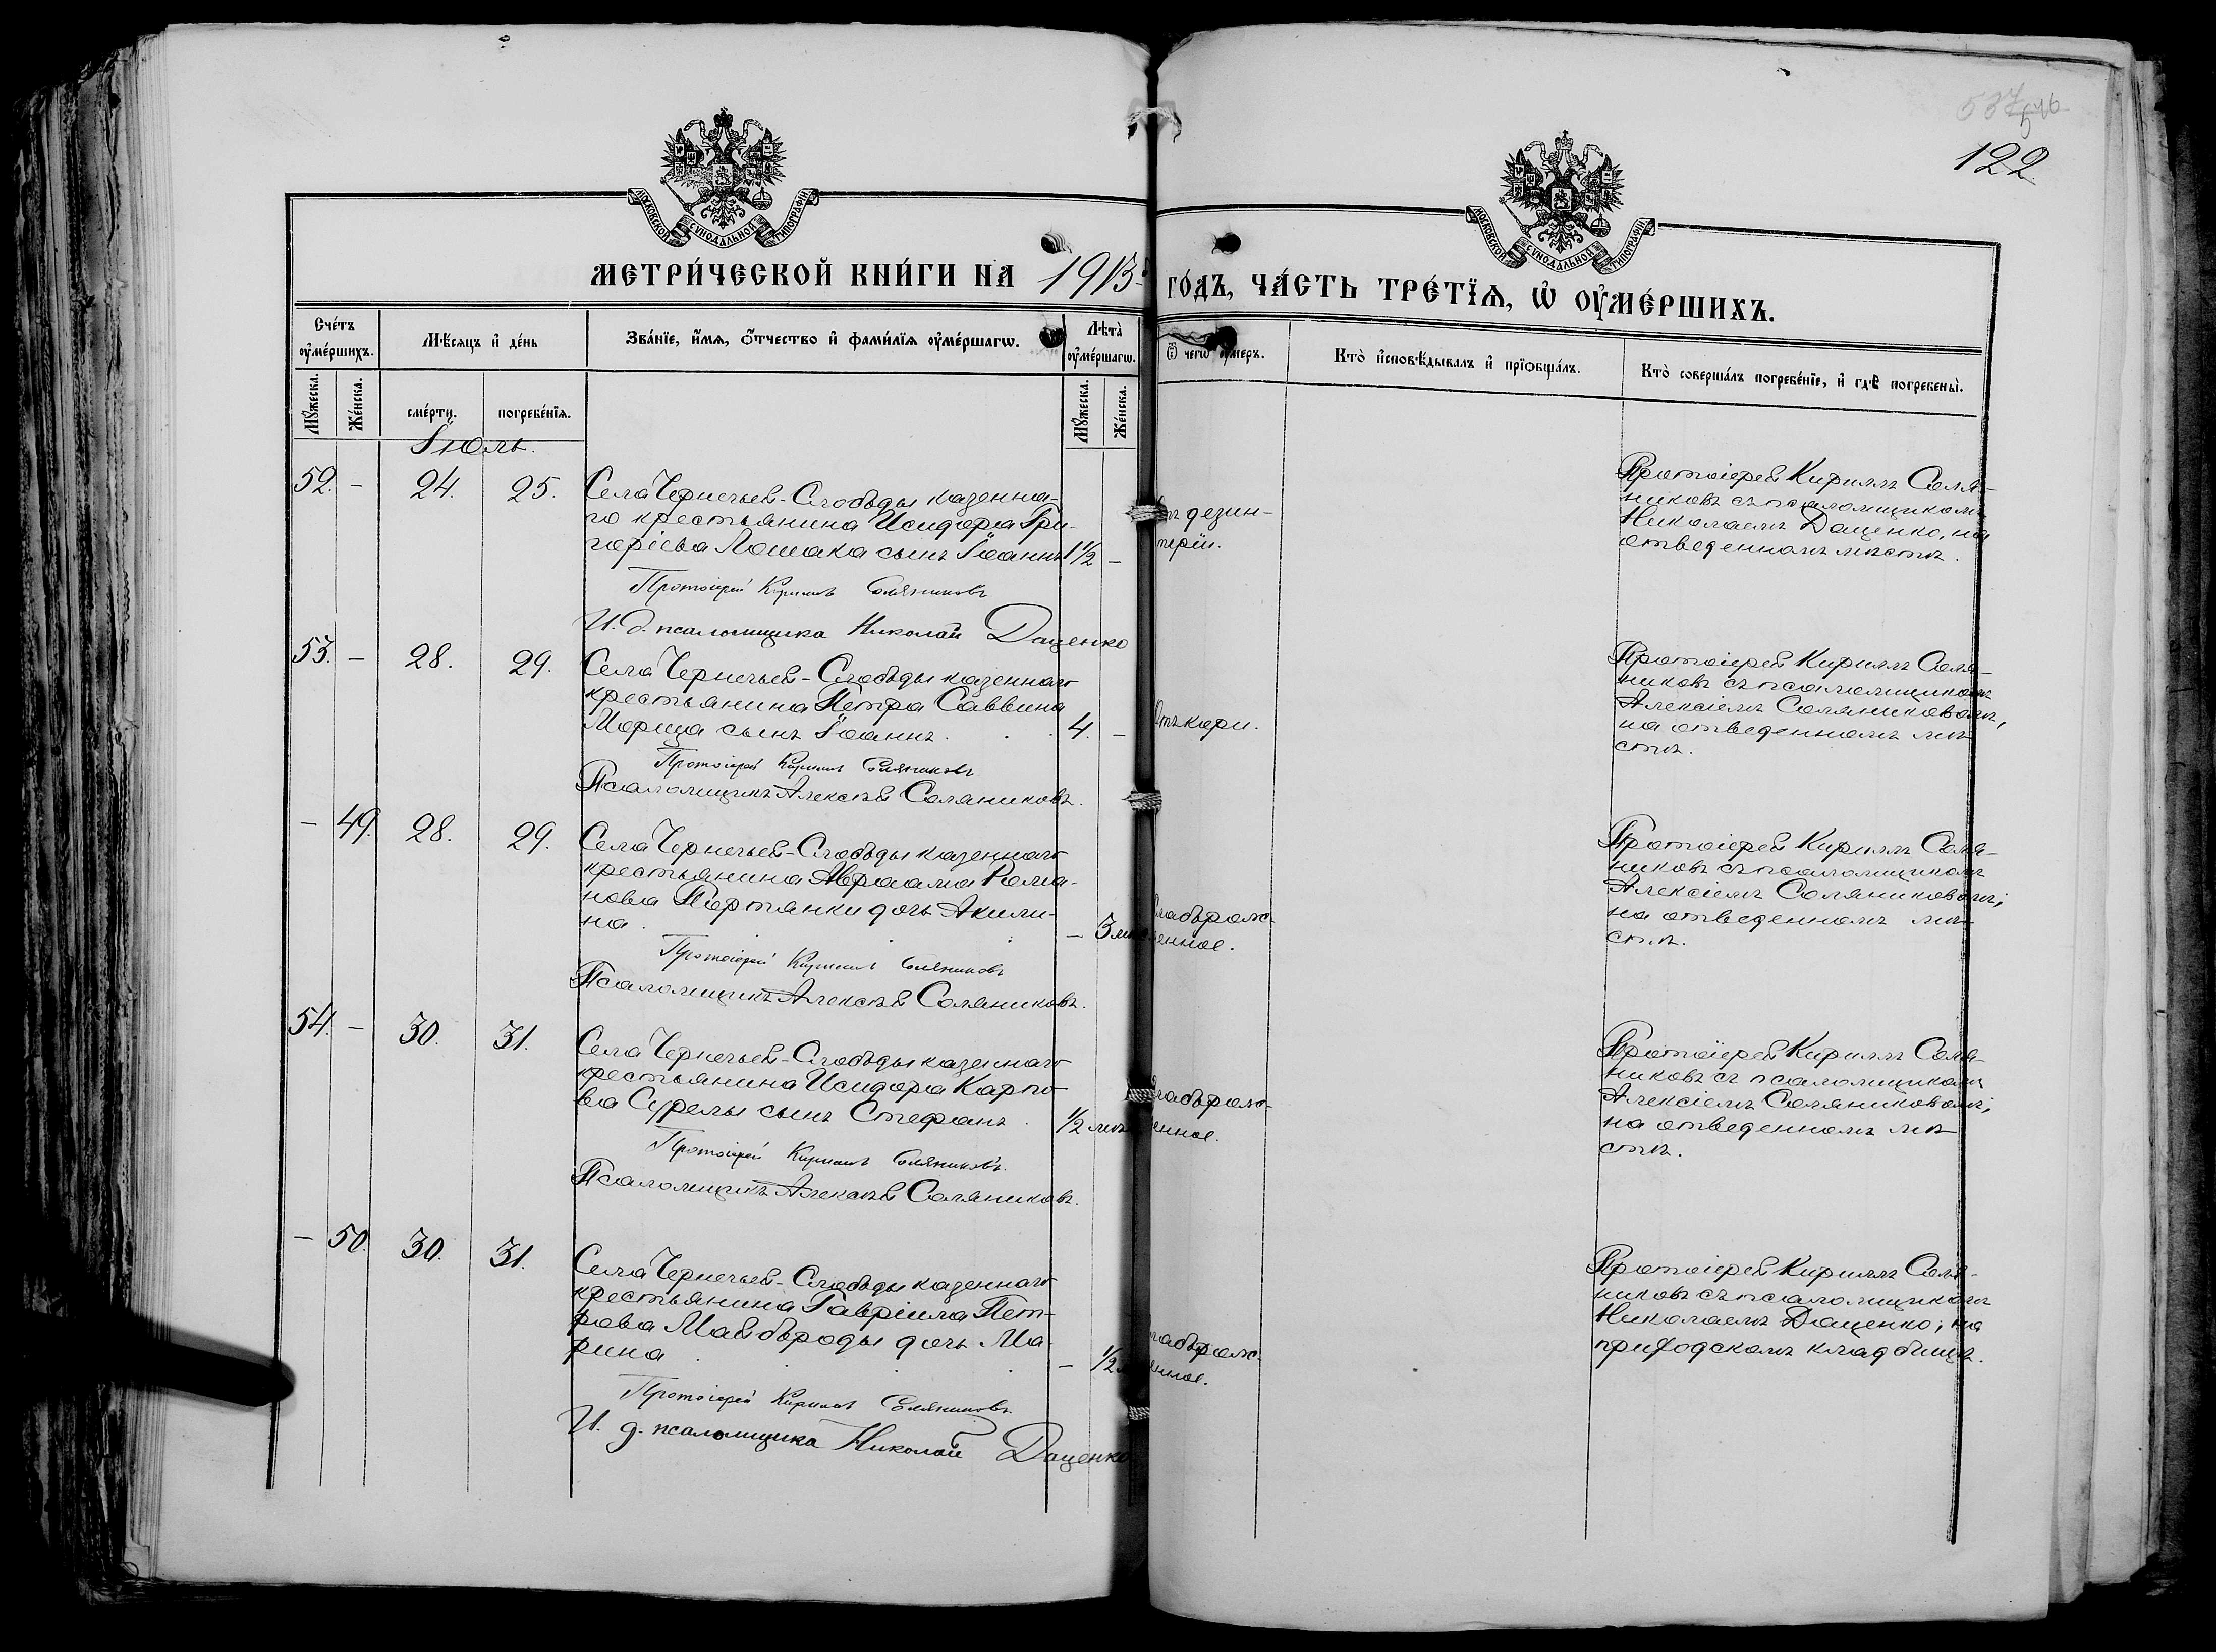 537
546
122.
МОСКОВСКОЙ СѴНОДАЛЬНОЙ ТИПОГРАФІИ
МОСКОВСКОЙ СѴНОДАЛЬНОЙ ТИПОГРАФІИ
МЕТРИ́ЧЕСКОЙ КНИ́ГИ НА 1913
ГО́ДЪ, ЧА́СТЬ ТРЕ́ТЇѦ, Ѡ҆ ОУ҆МЕ́РШИХЪ.
Сче́тъ оу҆ме́ршихъ.
Мѣ́сяцъ и҆ де́нь
Зва́нїе, и҆́мя, ѻ҆́тчество и҆ фами́лїя оу҆ме́ршагѡ.
Лѣта̀ оу҆ме́ршагѡ.
Ѿ чегѡ̀ оу҆́меръ.
Кто̀ и҆сповѣ́дывалъ и҆ прїѡбща́лъ.
Кто̀ соверша́лъ погребе́нїе, и҆ гдѣ̀ погребены̀.
Мꙋ́жеска.
Же́нска.
сме́рти.
погребе́нїя.
Мꙋ́жеска.
Же́нска.
Іюль.
52. - 24. 25.
Села Чернечьей-Слободы казенна-
го крестьянина Исидора Гри-
горіева Лошака сынъ Іоаннъ 1 1/2 -
Протоіерей Кириллъ Соляниковъ
И. д. псаломщика Николай Даценко
тъ дезин-
теріи.
Протоіерей Кириллъ Соля-
никовъ съ псаломщикомъ
Николаемъ Даценко, на
отведенномъ мѣстѣ.
53. - 28. 29.
Села Чернечьей-Слободы казеннаго
крестьянина Петра Саввина
Морица сынъ Іоаннъ. 4. -
Протоіерей Кириллъ Соляниковъ
Псаломщикъ Алексѣй Соляниковъ.
Отъ кори.
Протоіерей Кириллъ Соля-
никовъ съ псаломщикомъ
Алексіемъ Соляниковымъ,
на отведенномъ мѣ-
стѣ.
- 49. 28. 29.
Села Чернечьей-Слободы казеннаго
крестьянина Авраама Рома-
нова Портянки дочь Акили-
на. - 3 мѣ
Протоіерей Кириллъ Соляниковъ
Псаломщикъ Алексѣй Соляниковъ.
лаборож-
енное.
Протоіерей Кириллъ Соля-
никовъ съ псаломщикомъ
Алексіемъ Соляниковымъ,
на отведенномъ мѣ-
стѣ.
54. - 30. 31.
Села Чернечьей-Слободы казеннаго
крестьянина Исидора Карпо-
ва Сурелы сынъ Стефанъ. 1/2 мѣ
Протоіерей Кириллъ Соляниковъ.
Псаломщикъ Алексѣй Соляниковъ.
лаборож-
енное.
Протоіерей Кириллъ Соля-
никовъ съ псаломщикомъ
Алексіемъ Соляниковымъ,
на отведенномъ мѣ-
стѣ.
- 50. 30. 31.
Села Чернечьей-Слободы казеннаго
крестьянина Гавріила Пет-
рова Майбороды дочь Ма-
рина - 1/2
Протоіерей Кириллъ Соляниковъ.
И. д. псаломщика Николай Даценко
лаборож-
енное.
Протоіерей Кириллъ Соля-
никовъ съ псаломщикомъ
Николаемъ Даценко, на
приходскомъ кладбищѣ.